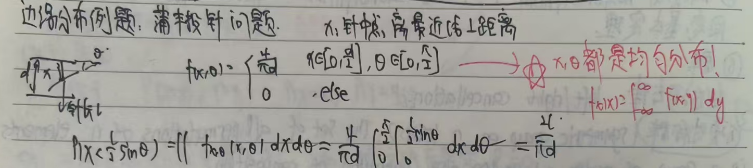 边缘分布例题:蒲丰投针问题. x:针中点离最近线上距离
θ
d x
f(x,θ)= { 4/πd x∈[0,d/2],θ∈[0,π/2] → ☆ x,θ都是均匀分布!
0 .else
fx(x)=∫_{-∞}^{∞} f(x,y) dy
P(x<l/2 sinθ)=∬ f(x,θ) dxdθ = 4/πd ∫_0^{π/2} ∫_0^{l/2 sinθ} dx dθ = 2l/πd